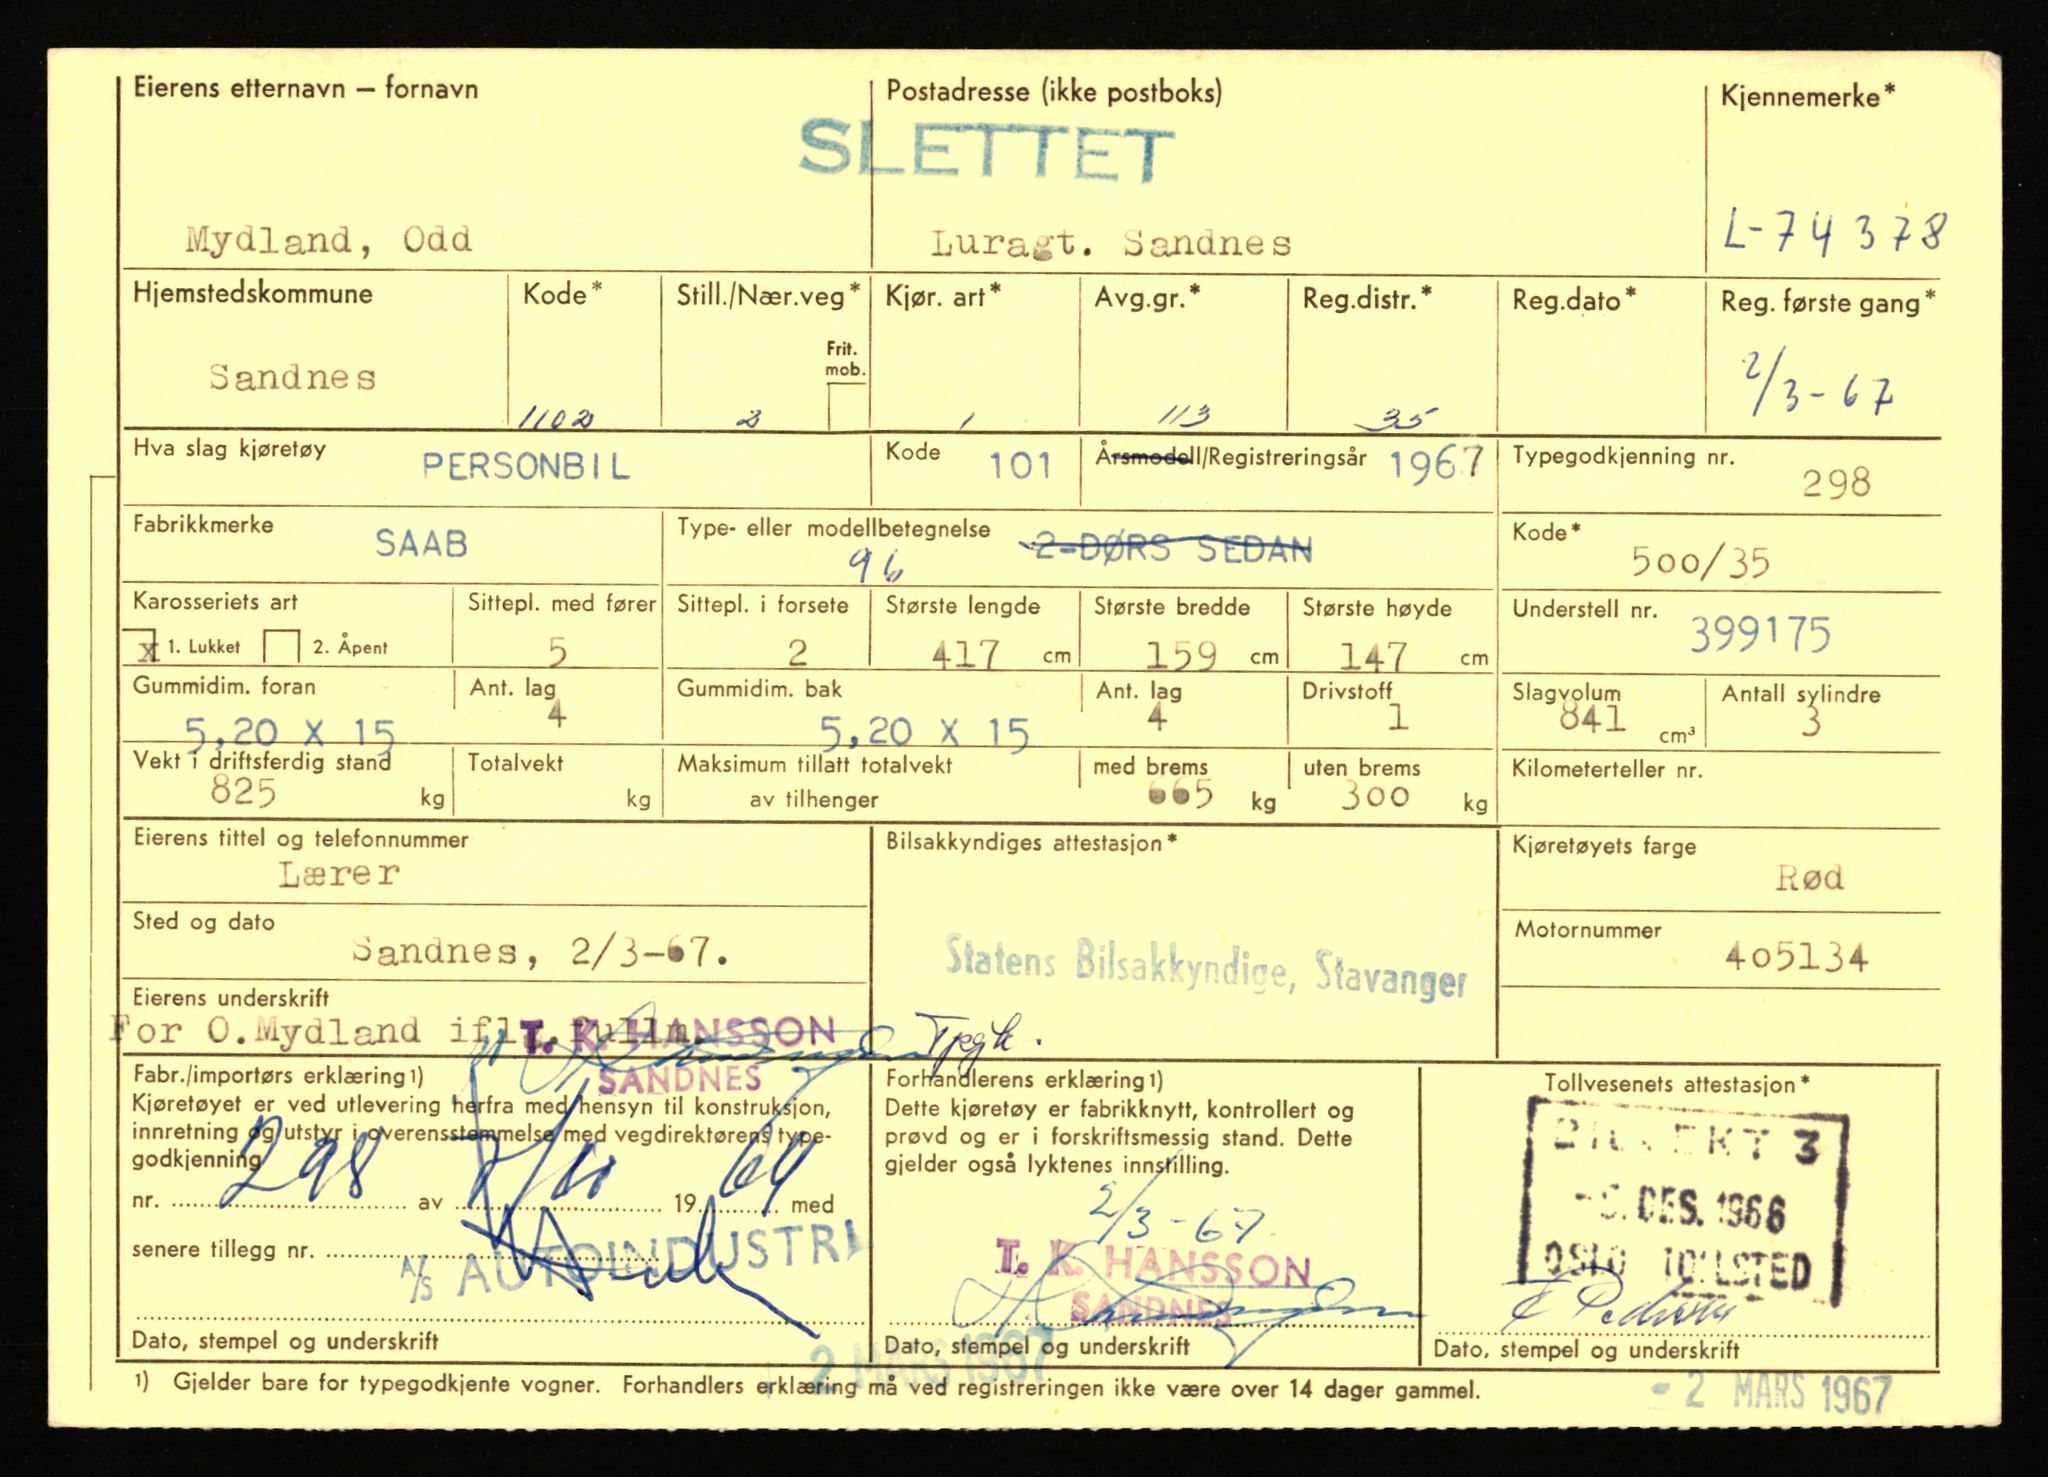 Eierens etternavn – fornavn Postadresse (ikke postboks) Kjennemerke*
SLETTET
Mydland, Odd Luragt. Sandnes L-74378
Hjemstedskommune Kode* Still./Nær.veg* Kjør. art* Avg.gr.* Reg.distr.* Reg.dato* Reg. første gang*
Frit. mob.
Sandnes 1102 2 1 113 35 2/3-67
Hva slag kjøretøy PERSONBIL Kode 101 Årsmodell/Registreringsår 1967 Typegodkjenning nr. 298
Fabrikkmerke SAAB Type- eller modellbetegnelse 96 2-DØRS SEDAN Kode* 500/35
Karosseriets art Sittepl. med fører Sittepl. i forsete Største lengde Største bredde Største høyde Understell nr.
x 1. Lukket 2. Åpent 5 2 417 cm 159 cm 147 cm 399175
Gummidim. foran Ant. lag Gummidim. bak Ant. lag Drivstoff Slagvolum Antall sylindre
5,20 X 15 4 5,20 X 15 4 1 841 cm³ 3
Vekt i driftsferdig stand Totalvekt Maksimum tillatt totalvekt med brems uten brems Kilometerteller nr.
825 kg kg av tilhenger 665 kg 300 kg
Eierens tittel og telefonnummer Bilsakkyndiges attestasjon* Kjøretøyets farge
Lærer Rød
Sted og dato Motornummer
Sandnes, 2/3-67. Statens Bilsakkyndige, Stavanger 405134
Eierens underskrift
For O.Mydland ifl. fullm. T. K. HANSSON Tpgk.
SANDNES
Fabr./importørs erklæring1) Forhandlerens erklæring1) Tollvesenets attestasjon*
Kjøretøyet er ved utlevering herfra med hensyn til konstruksjon, Dette kjøretøy er fabrikknytt, kontrollert og
innretning og utstyr i overensstemmelse med vegdirektørens type- prøvd og er i forskriftsmessig stand. Dette
godkjenning gjelder også lyktenes innstilling.
3
nr. 298 av 19 64 med 2/3-67. DES. 1966
senere tillegg nr. A/S AUTOINDUSTRI T. K. HANSSON OSLO TOLLSTED
SANDNES
Dato, stempel og underskrift Dato, stempel og underskrift Dato, stempel og underskrift
2 MARS 1967
1) Gjelder bare for typegodkjente vogner. Forhandlers erklæring må ved registreringen ikke være over 14 dager gammel.
- 2 MARS 1967